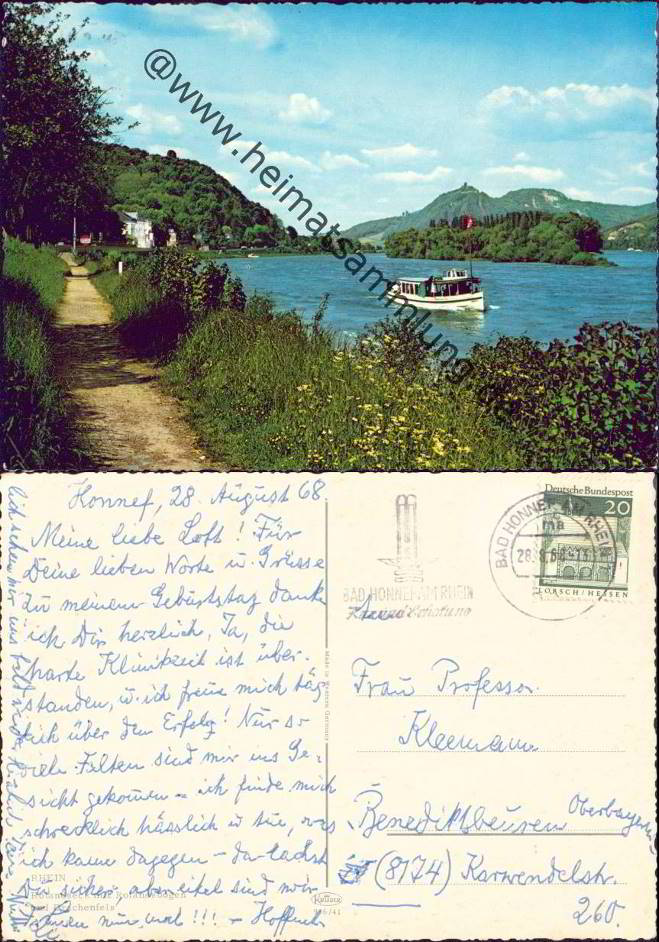 @www.heimatsammlung.de
Honnef, 28. August 68
Meine liebe Loft! Für
Deine lieben Worte u. Grüsse
zu meinem Geburtstag danke
ich Dir herzlich. Ja, die
harte Klinikzeit ist über-
standen, u. ich freue mich täg-
lich über den Erfolg! Nur so
viele Falten sind mir ins Ge-
sicht gekommen – ich finde mich
schrecklich hässlich u. tue, was
ich kann dagegen – da lachst
Du sicher, aber eitel sind wir
Frauen nun mal!!! – Hoffentl.
RHEIN
Rolandseck mit Rolandsbogen
und Drachenfels
Made in Western Germany
Krüger
BAD HONNEF AM RHEIN
BAD HONNEF AM RHEIN
ma
28.8.68-13
Deutsche Bundespost
20
LORSCH/HESSEN
Frau Professor
Kleemann
Benediktbeuren Oberbayern
(8174) Karwendelstr.
260.